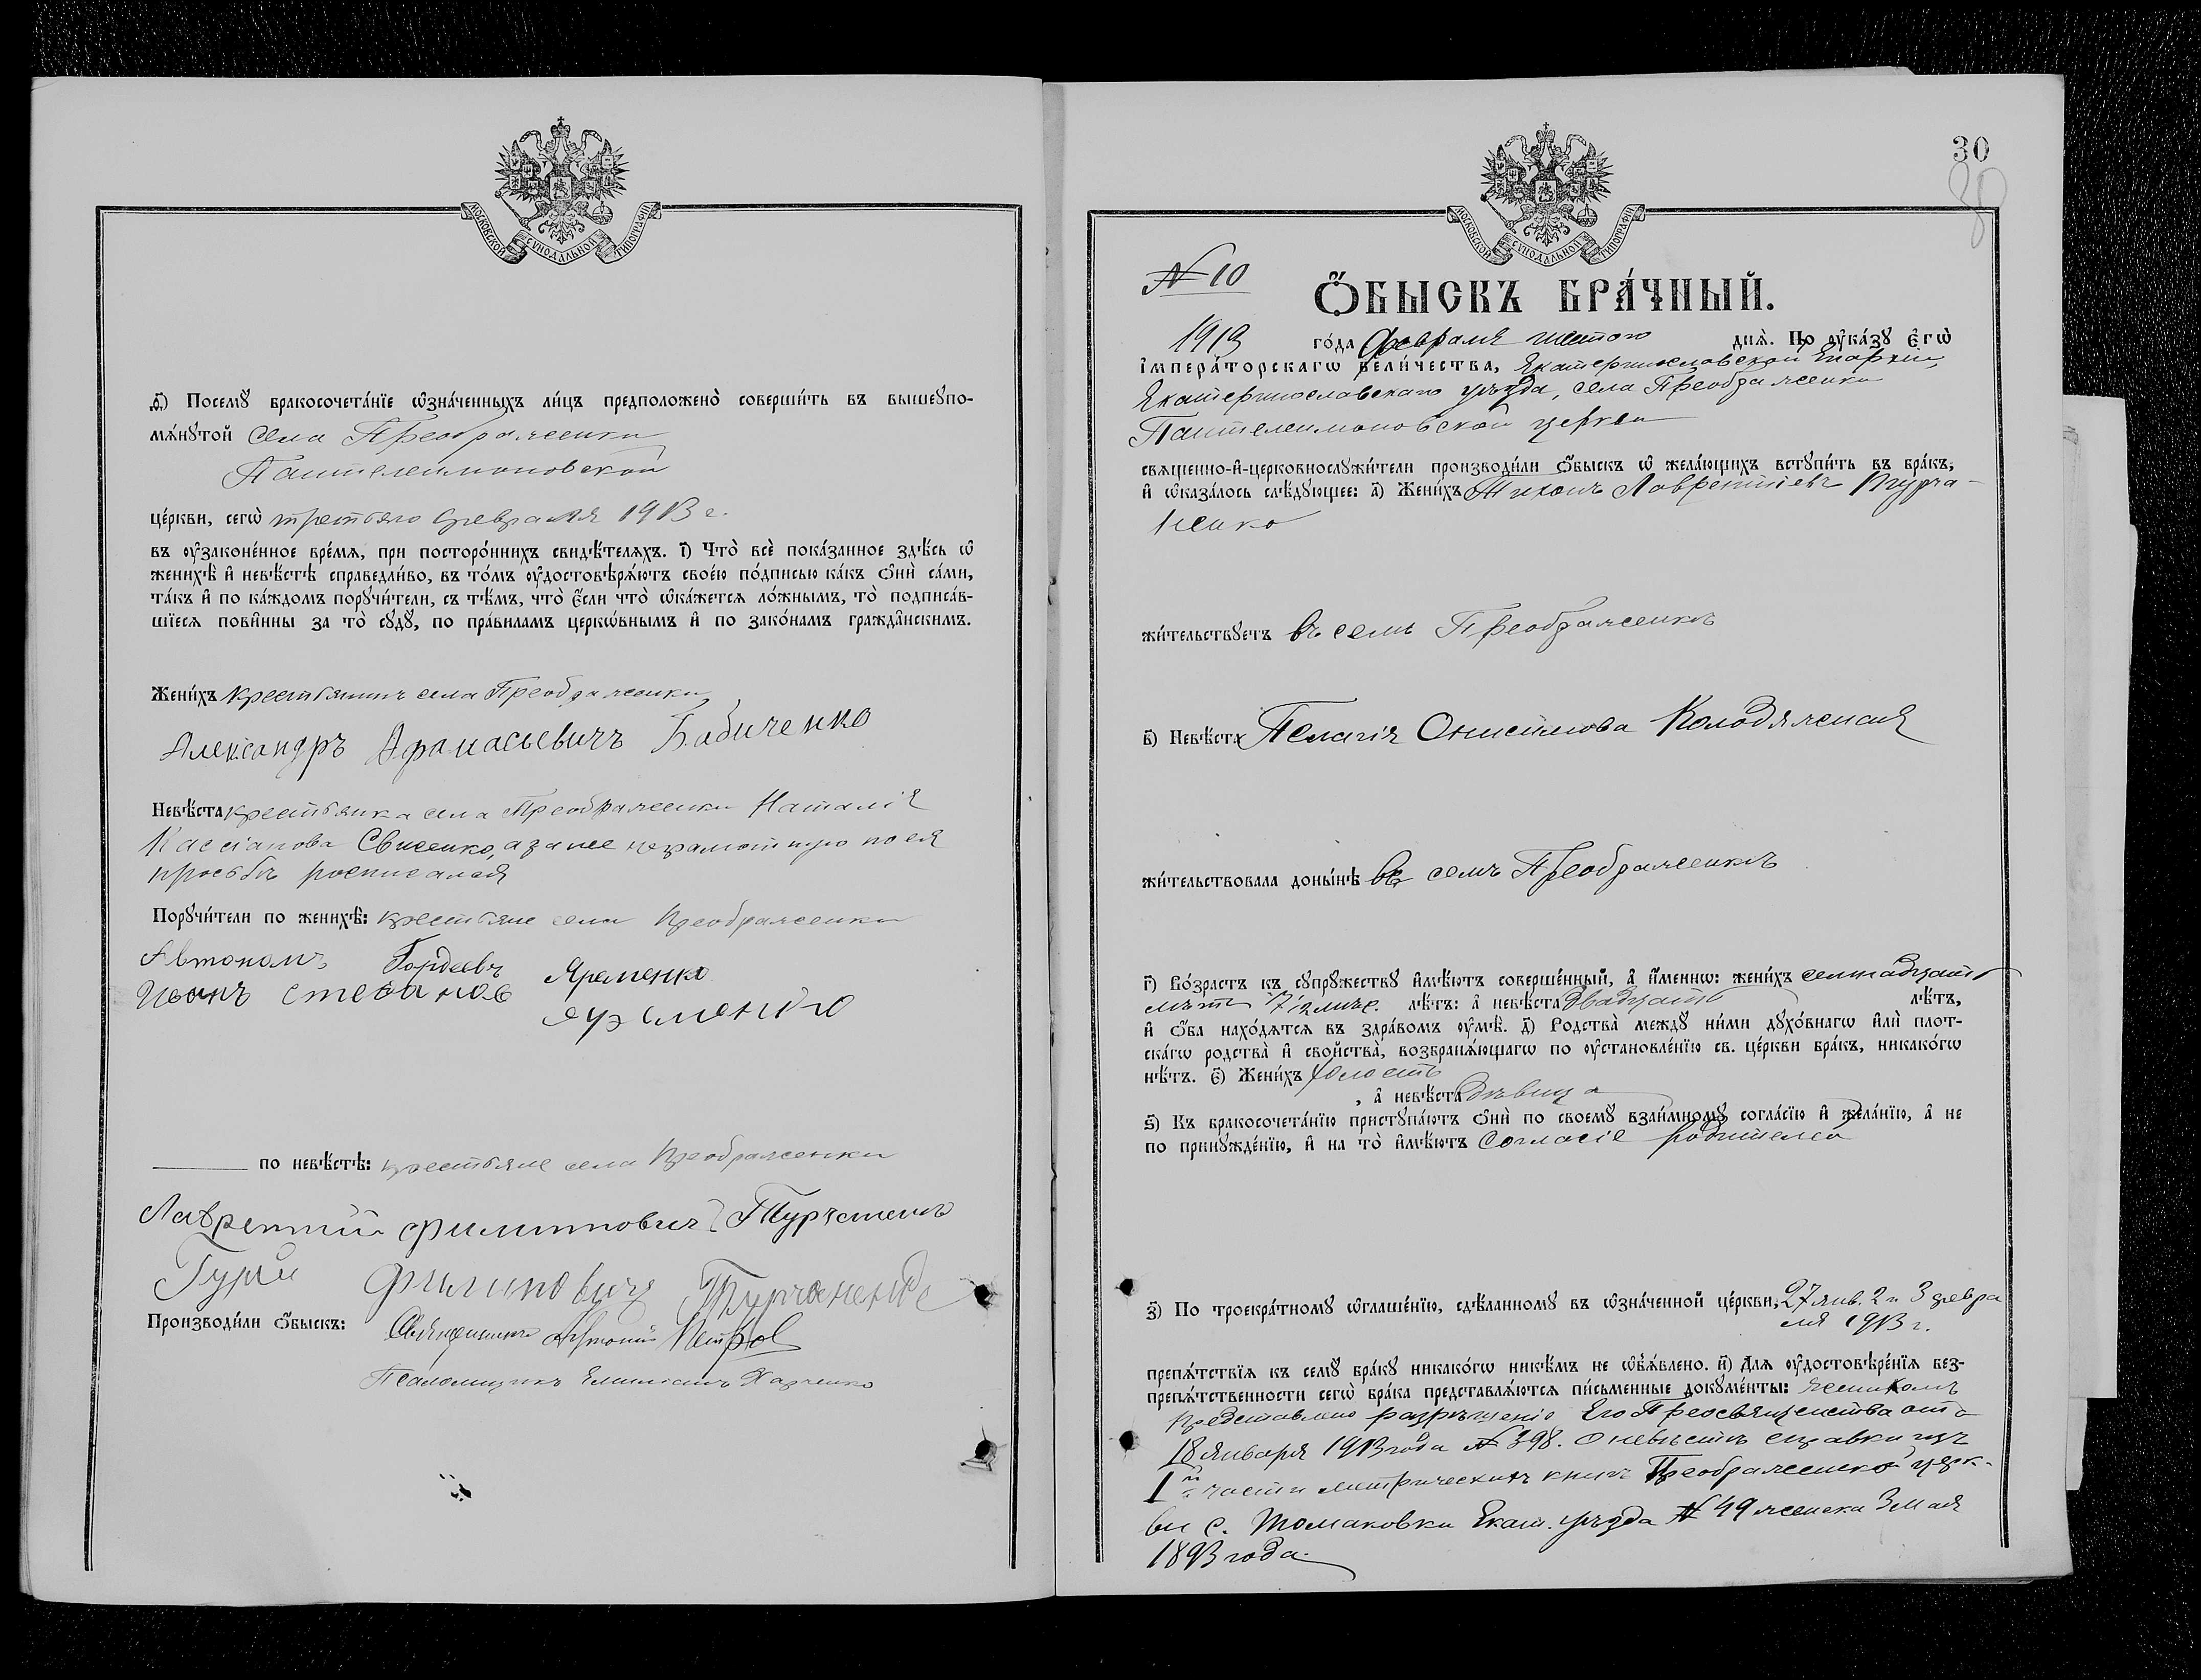 МОСКОВСКОЙ СУНОДАЛЬНОЙ ТИПОГРАФІИ
ѳ҃) Посемꙋ̀ бракосочета́нїе ѡ҆зна́ченныхъ ли́цъ предположено̀ соверши́ть въ вышеꙋпо-
мѧ́нꙋтой села Преображенки
Пантелеимоновской
це́ркви, сегѡ̀ третьяго февраля 1913 г.
въ ᲂу҆законе́нное вре́мѧ, при посторо́ннихъ свидѣ́телѧхъ. і҃) Что̀ всѐ пока́занное здѣ́сь ѡ҆
женихѣ̀ и҆ невѣ́стѣ справедли́во, въ то́мъ ᲂу҆достовѣрѧ́ютъ свое́ю по́дписью ка́къ ѻ҆нѝ са́ми,
та́къ и҆ по ка́ждомъ порꙋчи́тели, съ тѣ́мъ, что̀ є҆́сли что̀ ѡ҆ка́жется ло́жнымъ, то̀ подписа́в-
шїеся пови́нны за то̀ сꙋдꙋ̀, по пра́виламъ церко́внымъ и҆ по зако́намъ гражда́нскимъ.
Жени́хъ крестьянинъ села Преображенки
Александръ Афанасьевичъ Бабиченко
Невѣ́ста крестьянка села Преображенки Наталія
Кассіанова Свисенко, а за нее неграмотную по ея
просьбѣ росписался
Порꙋчи́тели по женихѣ̀: крестьяне села Преображенки
Автономъ Гордеевъ Яременко
Иванъ Степанов Яременко
по невѣ́стѣ: крестьяне села Преображенки
Лаврентий Филиппович Турчаненко
Гурий Филипович Турчаненко
Производи́ли ѻ҆́быскъ: Священникъ Антоній Петров
Псаломщикъ Емиліанъ Харченко
30
30
МОСКОВСКОЙ СУНОДАЛЬНОЙ ТИПОГРАФІИ
№ 10
Ѻ҆́БЫСКЪ БРА́ЧНЫЙ.
1913 го́да Февраля шестого днѧ̀. По ᲂу҆ка́зꙋ є҆гѡ̀
і҆мпера́торскагѡ вели́чества, Екатеринославской Епархіи,
Екатеринославскаго уѣзда, села Преображенки
Пантелеимоновской церкви
свѧще́нно-и҆-церковнослꙋжи́тели производи́ли ѻ҆́быскъ ѡ҆ жела́ющихъ встꙋпи́ть въ бра́къ,
и҆ ѡ҆каза́лось слѣ́дꙋющее: а҃) Жени́хъ Тихонъ Лаврентіевъ Турча-
ненко
жи́тельствꙋетъ въ селѣ Преображенкѣ
в҃) Невѣ́ста Пелагія Онисимова Колодяжная
жи́тельствовала доны́нѣ въ селѣ Преображенкѣ
г҃) Во́зрастъ къ сꙋпрꙋ́жествꙋ и҆мѣ́ютъ соверше́нный, а҆ и҆́менно: жени́хъ семнадцать
лѣтъ 7½ мѣс. лѣ́тъ: а҆ невѣ́ста двадцать лѣ́тъ,
и҆ ѻ҆́ба нахо́дѧтся въ здра́вомъ ᲂу҆мѣ̀. д҃) Родства̀ междꙋ̀ ни́ми дꙋхо́внагѡ и҆лѝ плот-
ска́гѡ родства̀ и҆ свойства̀, возбранѧ́ющагѡ по ᲂу҆становле́нїю св. це́ркви бра́къ, никако́гѡ
нѣ́тъ. є҃) Жени́хъ холостъ
, а҆ невѣ́ста дѣвица
ѕ҃) Къ бракосочета́нїю пристꙋпа́ютъ ѻ҆нѝ по своемꙋ̀ взаи́мномꙋ согла́сїю и҆ жела́нїю, а҆ не
по принꙋжде́нїю, и҆ на то̀ и҆мѣ́ютъ согласіе родителей
з҃) По троекра́тномꙋ ѡ҆глаше́нїю, сдѣ́ланномꙋ въ ѡ҆зна́ченной це́ркви, 27 янв. 2 и 3 февра
ля 1913 г.
препѧ́тствїѧ къ семꙋ̀ бра́кꙋ никако́гѡ никѣ́мъ не ѡ҆б̾ѧ́влено. и҃) Длѧ ᲂу҆достовѣре́нїѧ без-
препѧ́тственности сегѡ̀ бра́ка представлѧ́ются пи́сьменные докꙋме́нты: женихомъ
представлено разрѣшеніе Его Преосвященства отъ
18 января 1913 года № 398. о невѣстѣ справки изъ
1й части метрическихъ книгъ Преображенской церк-
ви с. Томаковки Екат. уѣзда № 49 женска 3 мая
1893 года.